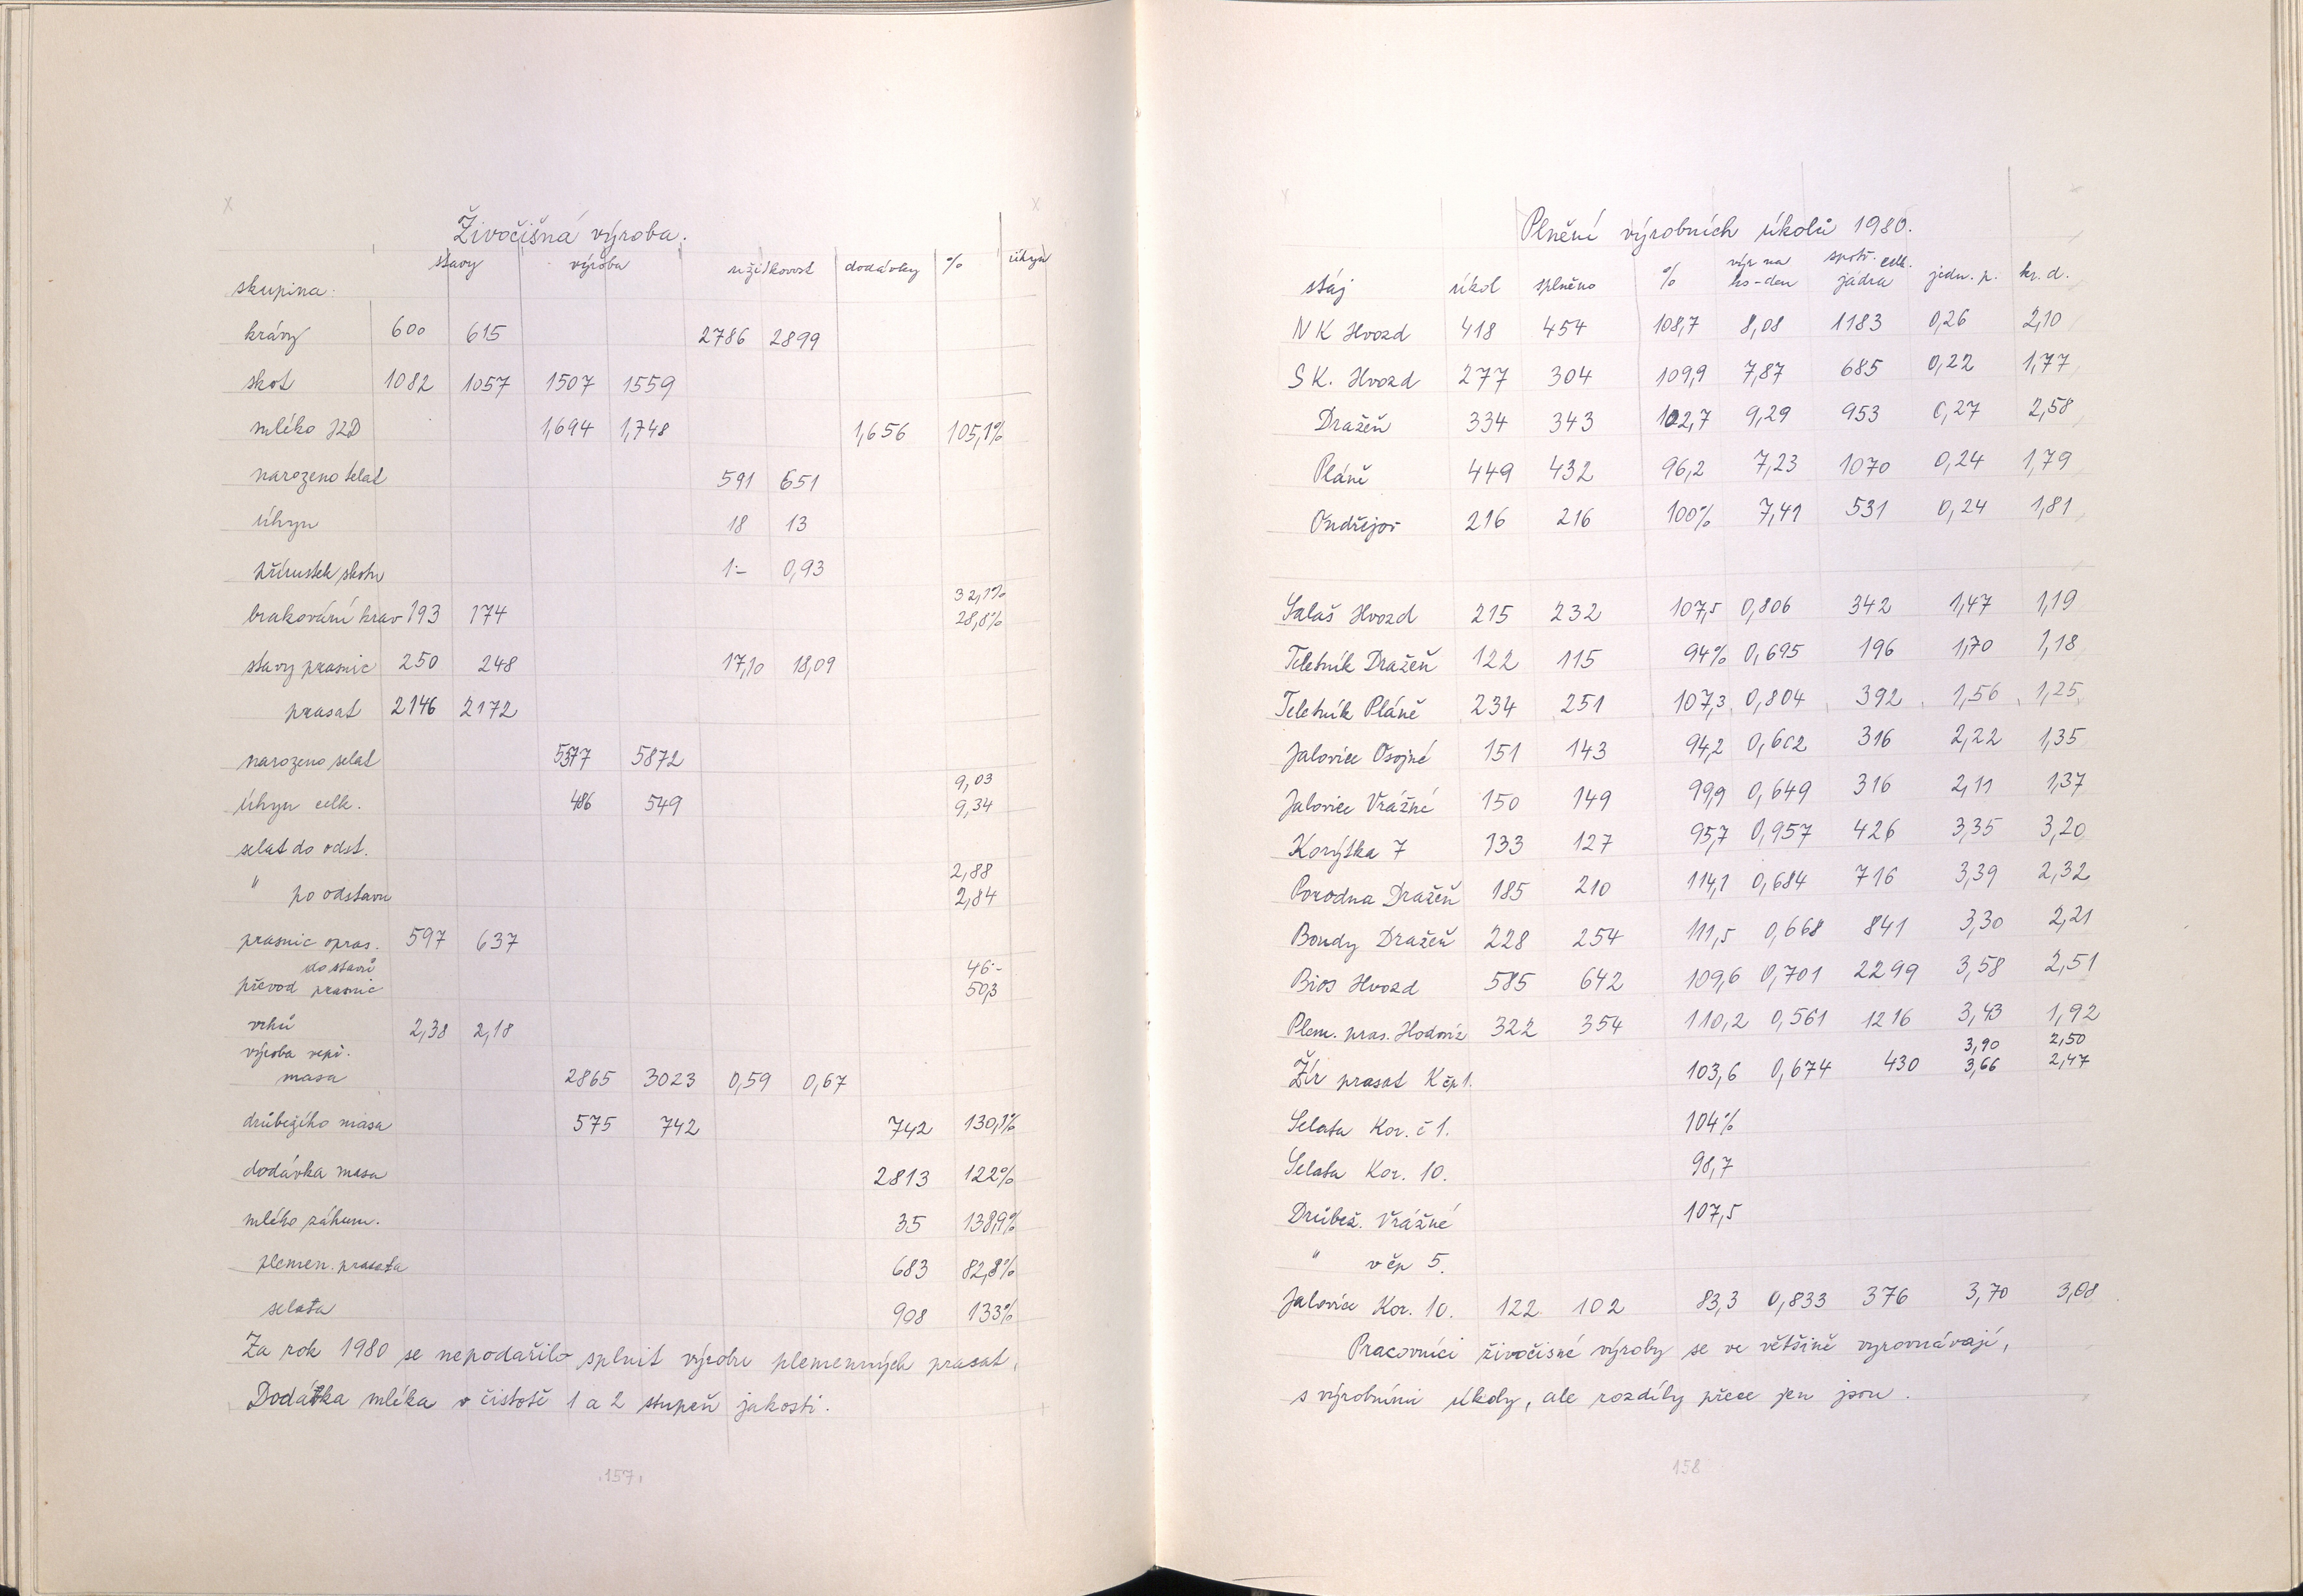 Živočišná výroba.
skupina: stavy výroba užitkovost dodávky % úhyn
krávy 600 615 2786 2899
skot 1082 1057 1507 1559
mléko JZD 1,694 1,748 1,656 105,1%
narozeno telat 591 651
úhyn 18 13
přírustek skotu 1.- 0,93
32,1%
brakování krav 193 174 28,8%
stavy prasnic 250 248 17,10 18,09
prasat 2146 2172
narozeno selat 5377 5872
9,03
úhyn celk. 486 549 9,34
selat do odst.
2,88
" po odstavu 2,84
prasnic opras. 597 637
do stavů 46.-
převod prasnic 50,3
vrhů 2,38 2,18
výroba vepř.
masa 2865 3023 0,59 0,67
drůbežího masa 575 742 742 130,1%
dodávka masa 2813 122%
mlého záhum. 35 138,9%
plemen. prasata 683 82,8%
selata 908 133%
Za rok 1980 se nepodařilo splnit výrobu plemenných prasat.
Dodávka mléka v čistotě 1 a 2 stupeň jakosti.
157
Plnění výrobních úkolů 1980.
stáj úkol splněno % výr na ks-den spotř. celk. jádra jedn. p. kr. d.
NK Hvozd 418 454 108,7 8,08 1183 0,26 2,10
SK. Hvozd 277 304 109,9 7,87 685 0,22 1,77
Dražeň 334 343 102,7 9,29 953 0,27 2,58
Pláně 449 432 96,2 7,23 1070 0,24 1,79
Ondřejov 216 216 100% 7,41 531 0,24 1,81
Salaš Hvozd 215 232 107,5 0,806 342 1,47 1,19
Teletník Dražeň 122 115 94% 0,695 196 1,70 1,18
Teletník Pláně 234 251 107,3 0,804 392 1,56 1,25
Jalovice Osojné 151 143 94,2 0,602 316 2,22 1,35
Jalovice Vrážné 150 149 99,9 0,649 316 2,11 1,37
Korýtka 7 133 127 95,7 0,957 426 3,35 3,20
Porodna Dražeň 185 210 114,1 0,684 716 3,39 2,32
Boudy Dražeň 228 254 111,5 0,668 841 3,30 2,21
Bios Hvozd 585 642 109,6 0,701 2299 3,58 2,51
Plem. pras. Hodoviz 322 354 110,2 0,561 1216 3,43 1,92
3,90 2,50
Žír prasat K čp 1. 103,6 0,674 430 3,66 2,47
Selata Kor. č 1. 104%
Selata Kor. 10. 98,7
Drůbež. Vrážné 107,5
" v čp 5.
Jalovice Kor. 10. 122 102 83,3 0,833 376 3,70 3,08
Pracovníci živočisné výroby se ve většině vyrovnávají,
s výrobními úkoly, ale rozdíly přece jen jsou.
158